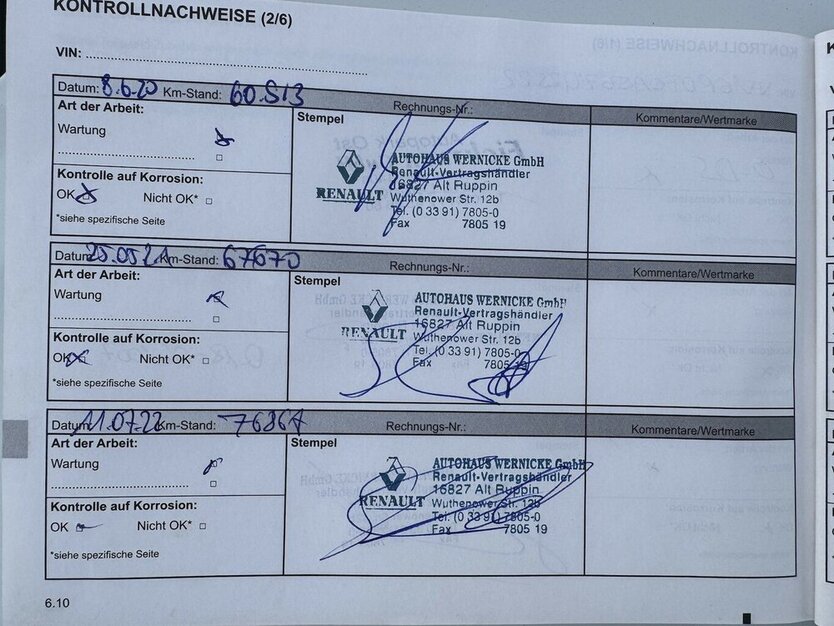 KONTROLLNACHWEISE (2/6)
VIN:
Datum: 8.6.20 Km-Stand: 60.513 Rechnungs-Nr.: Kommentare/Wertmarke
Art der Arbeit:
Stempel
Wartung
Kontrolle auf Korrosion:
OK Nicht OK*
*siehe spezifische Seite
AUTOHAUS WERNICKE GmbH
Renault-Vertragshändler
16827 Alt Ruppin
Wuthenower Str. 12b
Tel. (0 33 91) 7805-0
Fax 7805 19
RENAULT
Datum: 25.05.21 Km-Stand: 67670 Rechnungs-Nr.: Kommentare/Wertmarke
Art der Arbeit:
Stempel
Wartung
Kontrolle auf Korrosion:
OK Nicht OK*
*siehe spezifische Seite
AUTOHAUS WERNICKE GmbH
Renault-Vertragshändler
16827 Alt Ruppin
Wuthenower Str. 12b
Tel. (0 33 91) 7805-0
Fax 7805
RENAULT
Datum: 11.07.22 Km-Stand: Rechnungs-Nr.: Kommentare/Wertmarke
Art der Arbeit:
Stempel
Wartung
Kontrolle auf Korrosion:
OK Nicht OK*
*siehe spezifische Seite
AUTOHAUS WERNICKE GmbH
Renault-Vertragshändler
16827 Alt Ruppin
Wuthenower Str. 12b
Tel. (0 33 91) 7805-0
Fax 7805 19
RENAULT
6.10